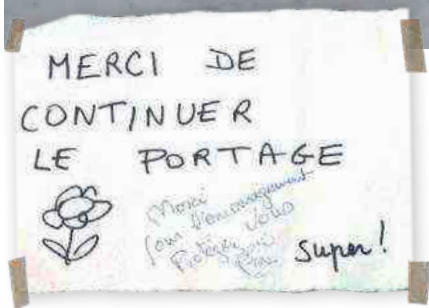 MERCI DE
CONTINUER
LE PORTAGE
Merci
pour l'encouragement
Protégez vous
super!